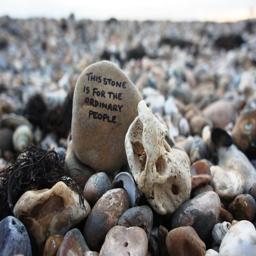 THIS STONE
IS FOR THE
ORDINARY
PEOPLE